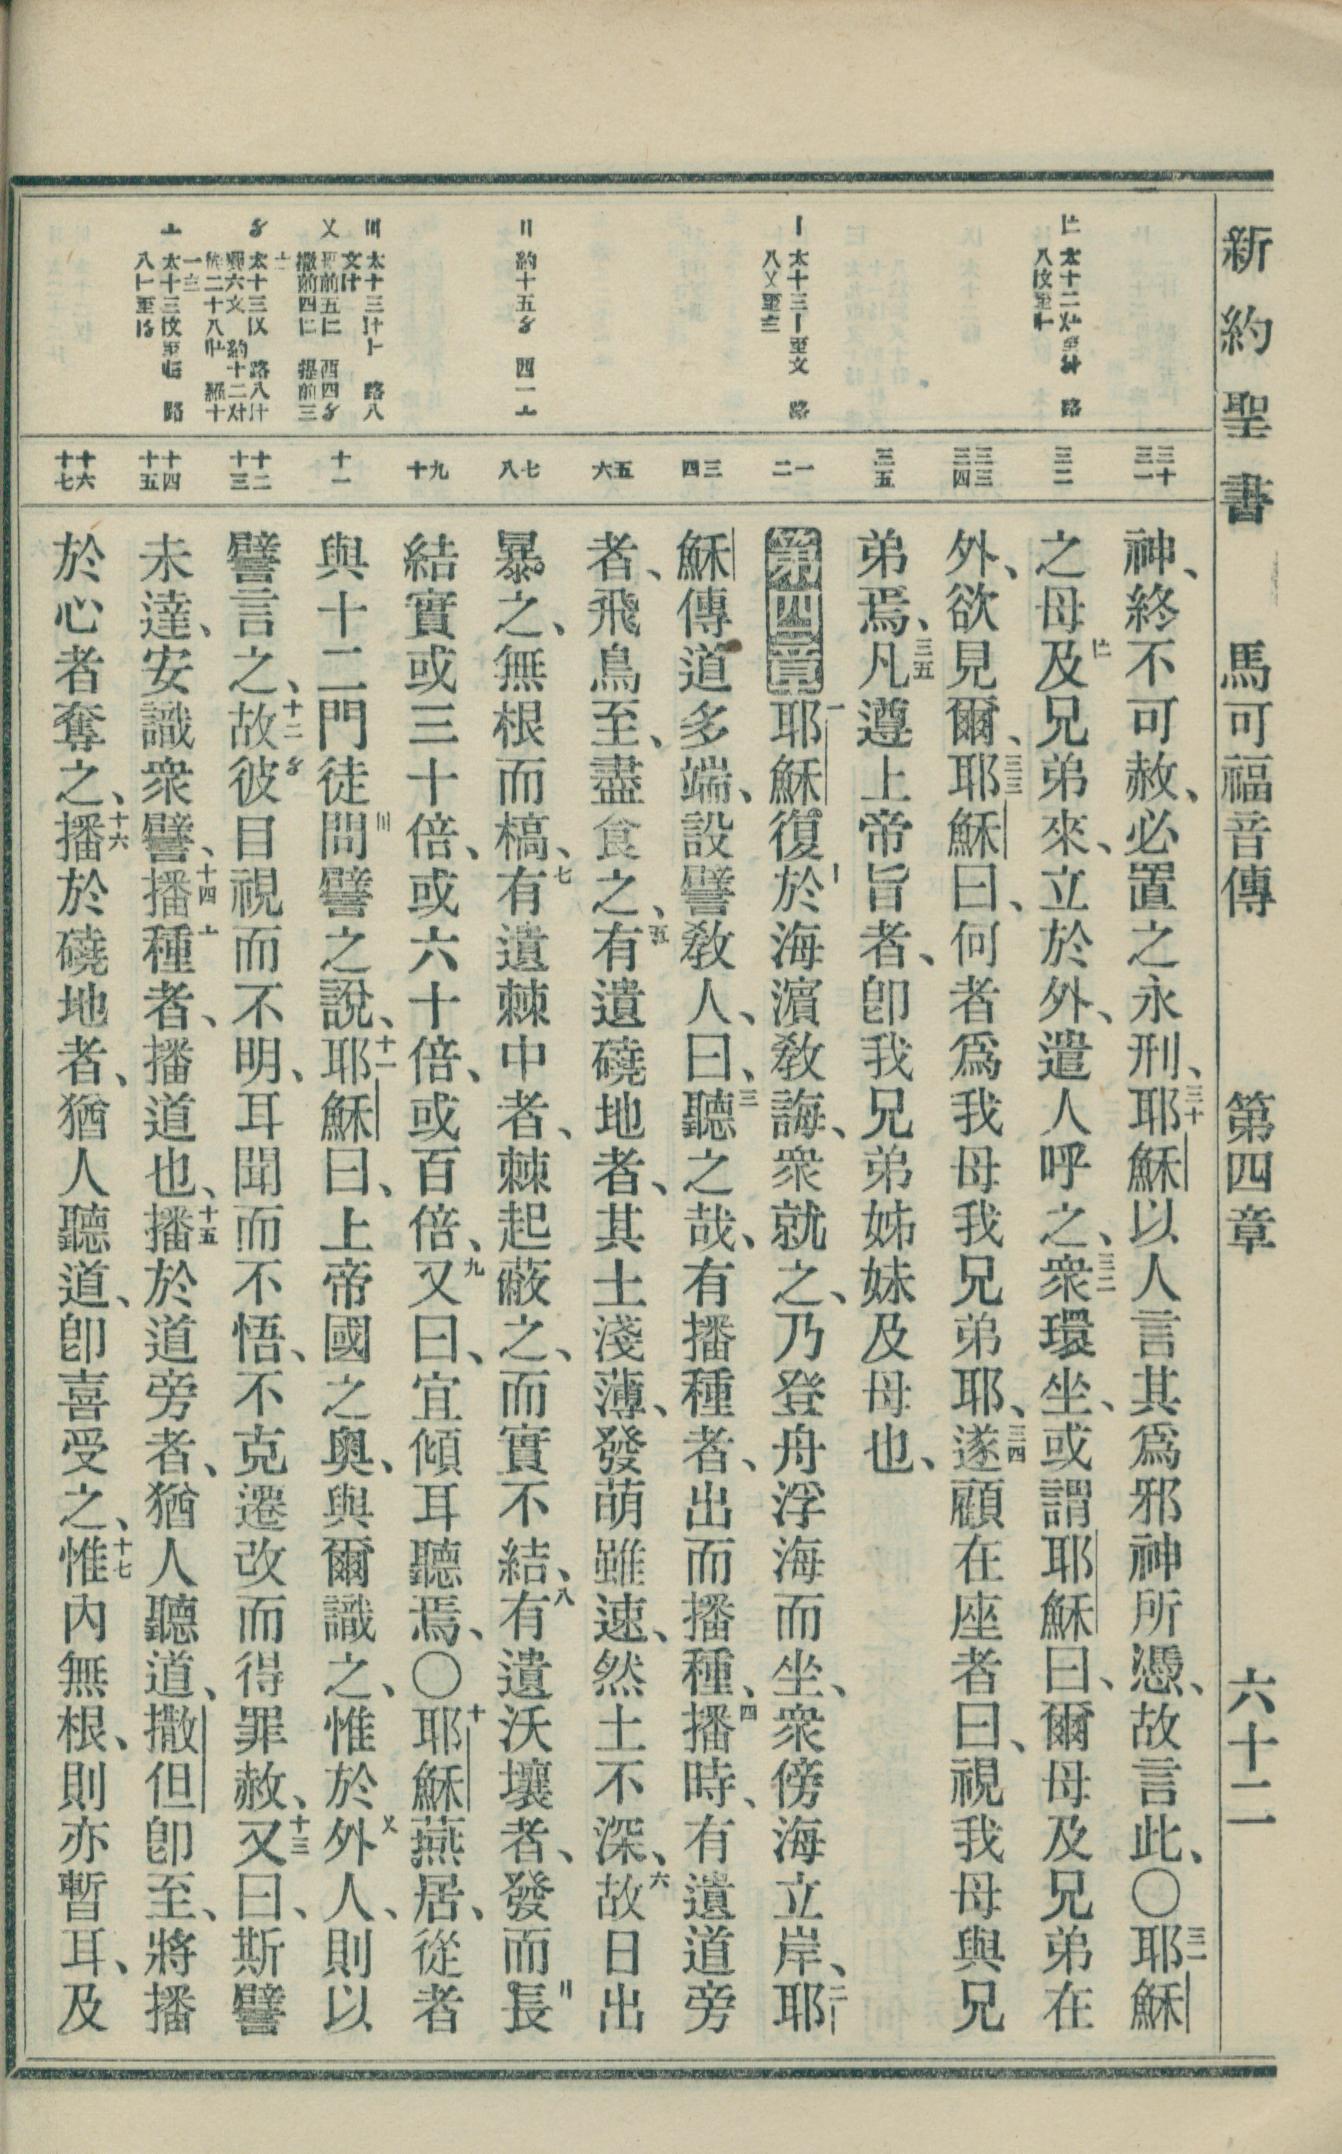 新約聖書 馬可福音傳 第四章 六十二
三十 三一
三二
三三 三四
三五
一 二
三 四
五 六
七 八
九 十
十一
十二 十三
十四 十五
十六 十七
神、終不可赦、必置之永刑、三十耶穌以人言其爲邪神所憑、故言此、〇三一耶穌
之母及兄弟來、立於外、遣人呼之、三二衆環坐、或謂耶穌曰、爾母及兄弟在
外、欲見爾、三三耶穌曰、何者爲我母我兄弟耶、三四遂顧在座者曰、視我母與兄
弟焉、三五凡遵上帝旨者、卽我兄弟姊妹及母也、
第四章 一耶穌復於海濱敎誨、衆就之、乃登舟浮海而坐、衆傍海立岸、二耶
穌傳道多端、設譬敎人、曰、三聽之哉、有播種者、出而播種、四播時、有遺道旁
者、飛鳥至、盡食之、五有遺磽地者、其土淺薄、發萌雖速、然土不深、六故日出
暴之、無根而槁、七有遺棘中者、棘起蔽之、而實不結、八有遺沃壤者、發而長
結實或三十倍、或六十倍、或百倍、九又曰、宜傾耳聽焉、〇十耶穌燕居、從者
與十二門徒問譬之說、十一耶穌曰、上帝國之奧、與爾識之、惟於外人、則以
譬言之、十二故彼目視而不明、耳聞而不悟、不克遷改而得罪赦、十三又曰、斯譬
未達、安識衆譬、十四播種者、播道也、十五播於道旁者、猶人聽道、撒但卽至、將播
於心者奪之、十六播於磽地者、猶人聽道、卽喜受之、十七惟內無根、則亦暫耳、及